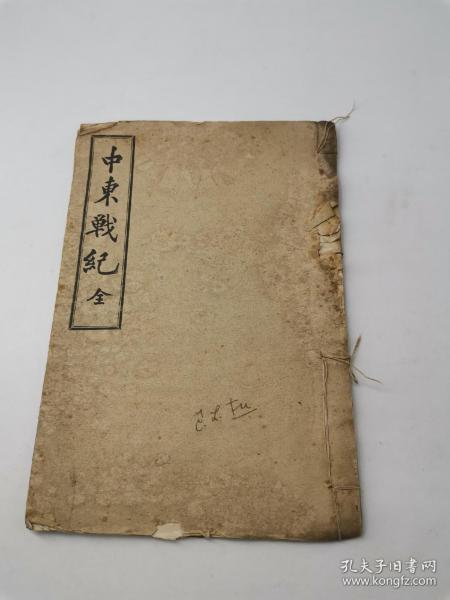 中東戰紀全
孔夫子旧书网
www.kongfz.com